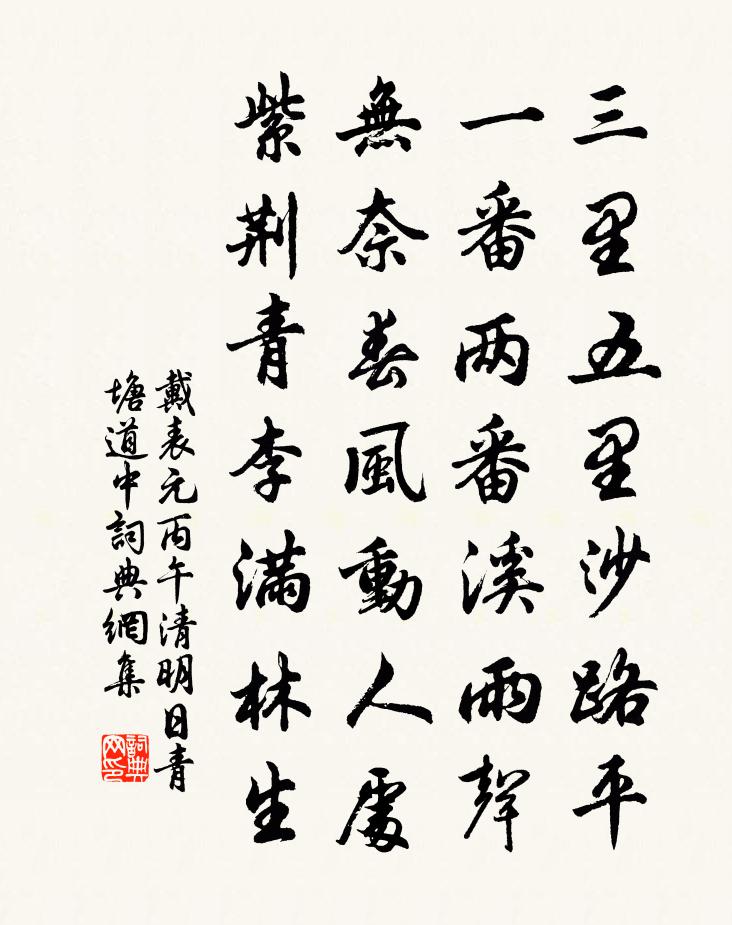 三里五里沙路平
一番两番溪雨聲
無奈春風動人處
紫荆青李满林生
戴表元丙午清明日青
塘道中詞典網集
詞典
网印